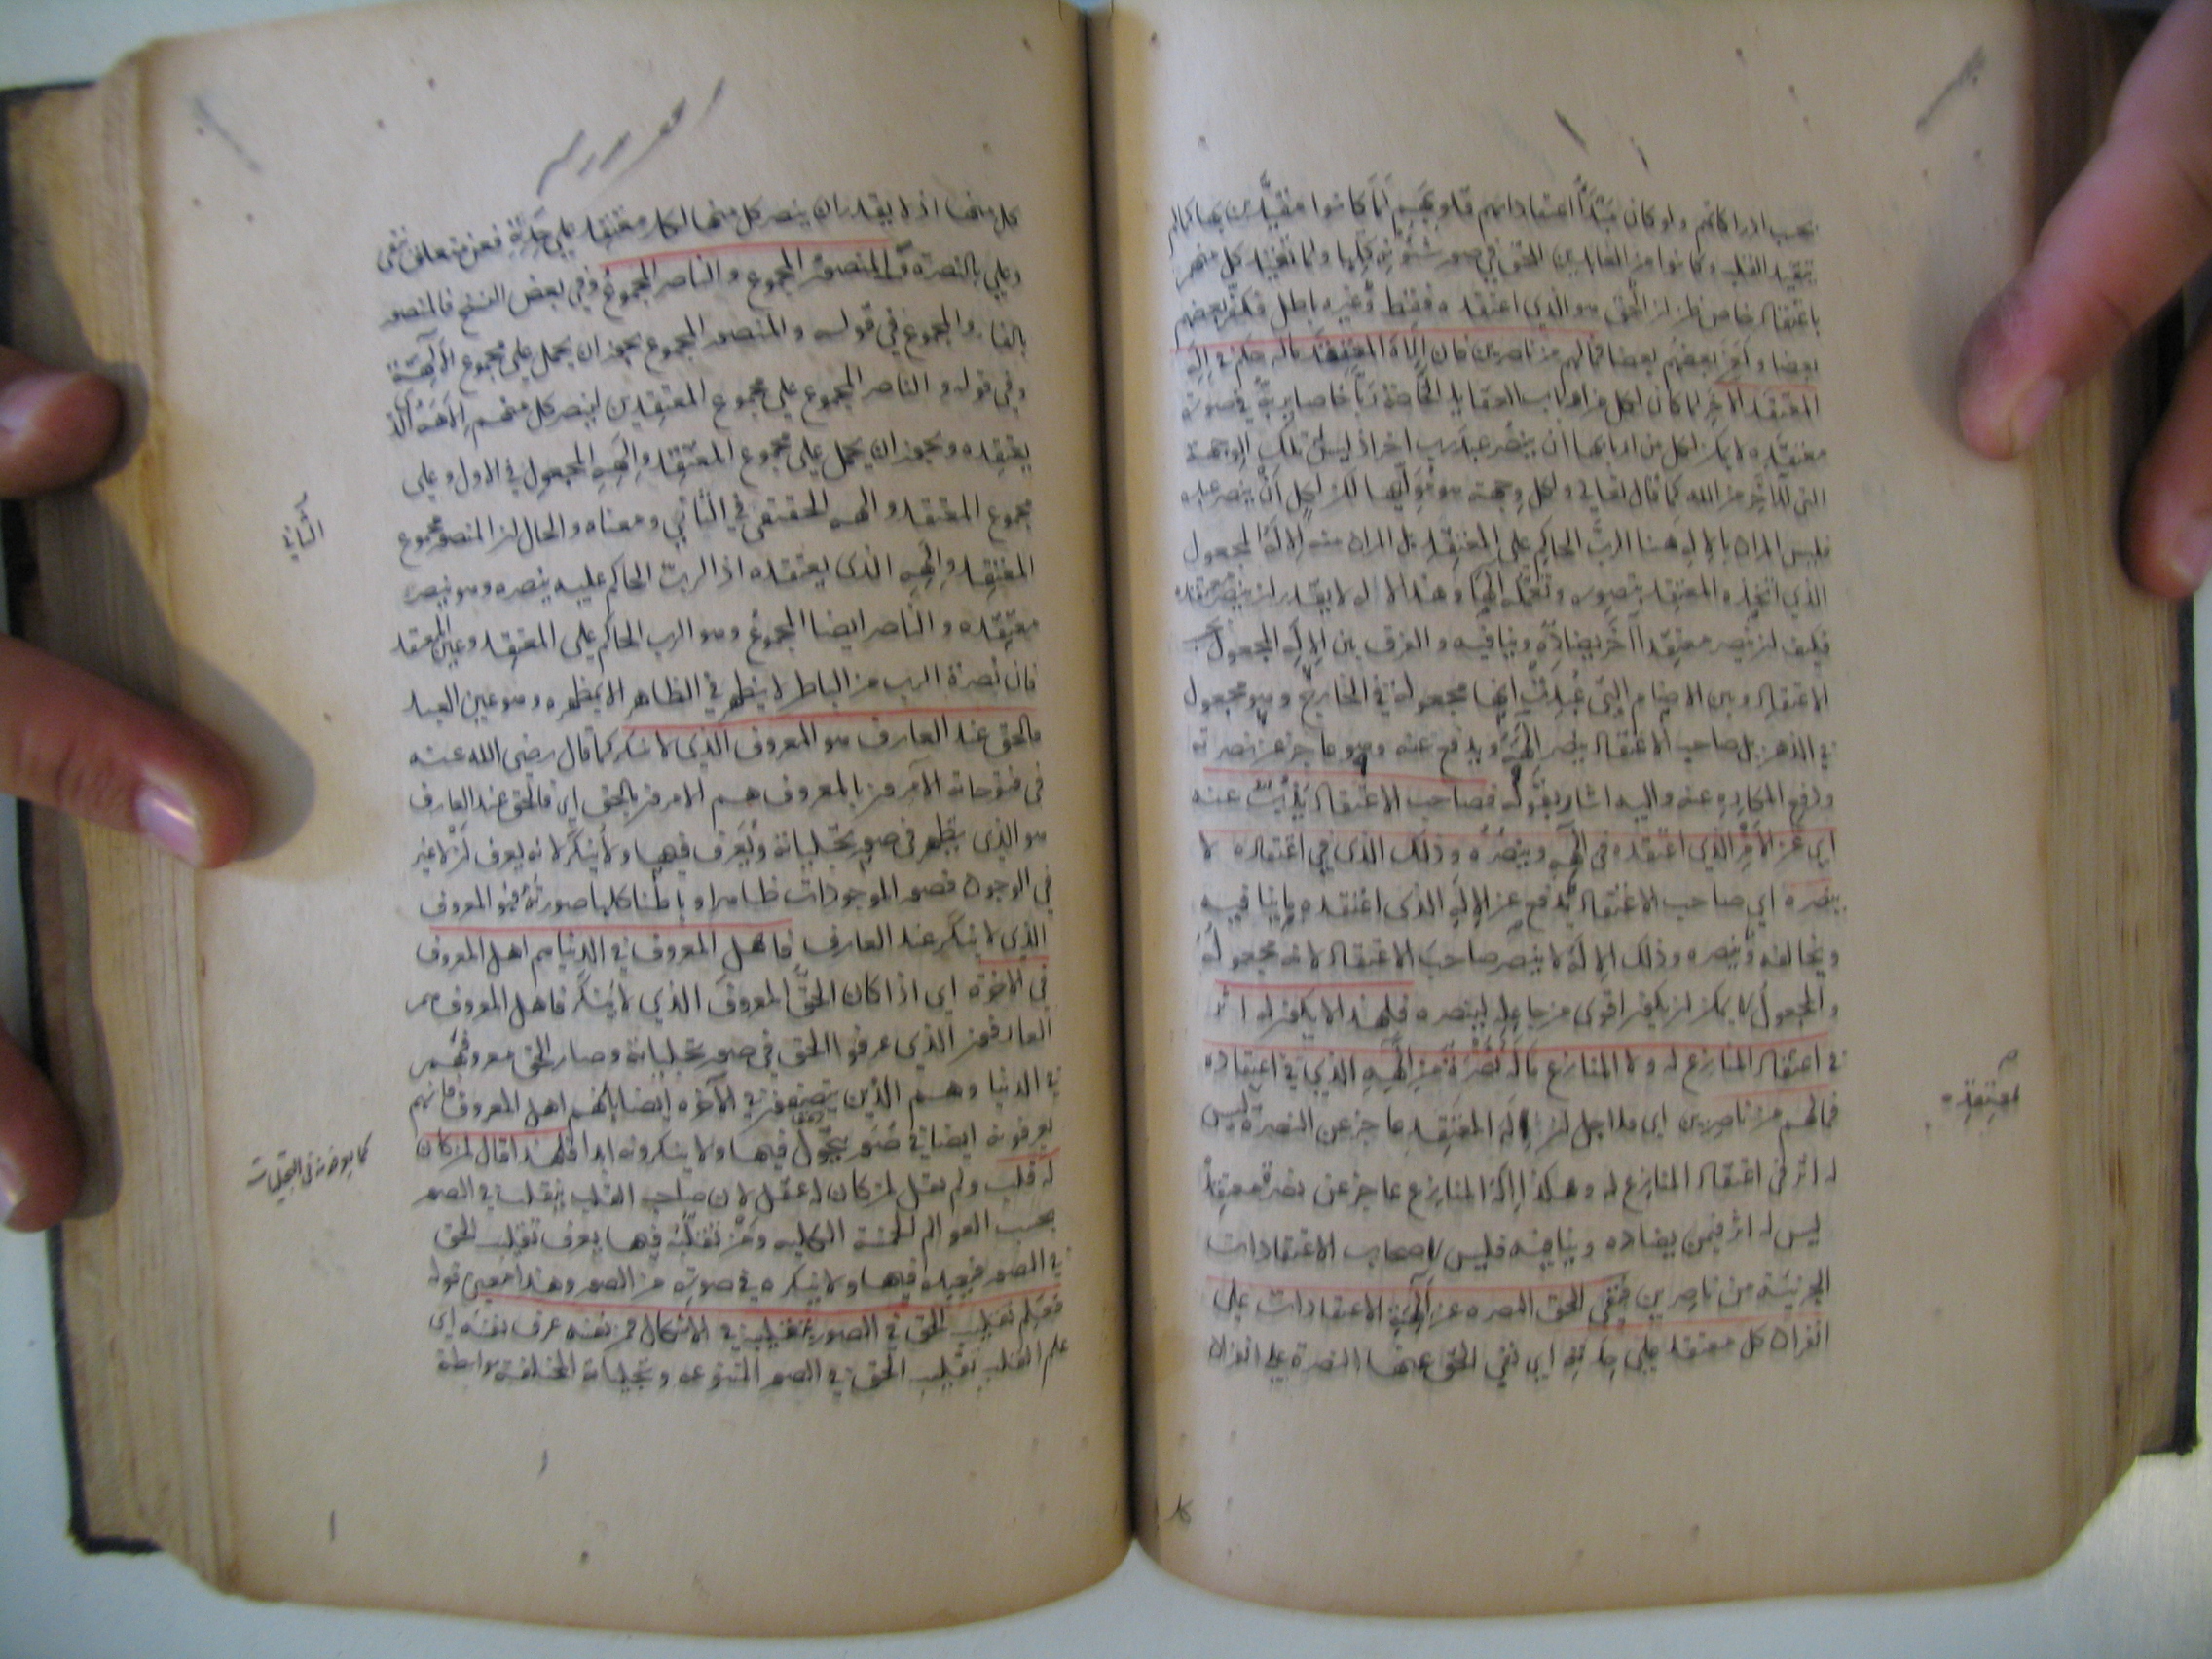 بحسب ادراكاتهم ولو كان مبتدأ اعتقاداتهم قلوبهم لما كانوا مقيدين بها كما لم
يتقيد القلب وكانوا من العابدين الحق في صور شئونه كلها ولما تقيد كل منهم
باعتقاد خاص ظن ان الحق هو الذي اعتقده فقط وغيره باطل فكفر بعضهم
بعضا ولعن بعضهم بعضا فما لهم من ناصرين فان اله المعتقد ما له حكم في اله
المعتقد الاخر لما كان لكل من ارباب العقايد الخاصة ربا خاصا يربه في صورة
معتقده لا يمكن لكل من اربابها ان ينصر عبد رب اخر اذ ليس تلك الوجهة
التي للآخر من الله كما قال تعالى ولكل وجهة هو موليها لكن لكل ان ينصر عبده
فليس المراد بالاله هنا الرب الحاكم على المعتقد بل المراد منه الاله المجعول
الذي اتخذه المعتقد بتصوره وتعمله الها وهذا الاله لا يقدر ان ينصر معتقده
فكيف ان ينصر معتقدا آخر يضاده وينافيه والفرق بين الاله المجعول
الاعتقادي وبين الاصنام التي عبدت انها مجعولة في الخارج وهو مجعول
في الذهن بل صاحب الاعتقاد ينصر الهه ويدفع عنه وهو عاجز عن نصرته
ودفع المكاره عنه واليه اشار بقوله فصاحب الاعتقاد يذب عنه
اي عن الامر الذي اعتقده في الهه وينصره وذلك الذي في اعتقاده لا
ينصره اي صاحب الاعتقاد يدفع عن الاله الذي اعتقده ما ينافيه
ويخالفه وينصره وذلك الاله لا ينصر صاحب الاعتقاد لانه مجعول له
والمجعول لا يمكن ان يكون اقوى من جاعله لينصره فلهذا لا يكون له اثر
في اعتقاد المنازع له ولا المنازع ما له نصرة من الهه الذي في اعتقاده
فما لهم من ناصرين اي ولاجل ان اله المعتقد عاجز عن النصرة ليس
معتقده
له اثر في اعتقاد المنازع له وهكذا اله المنازع عاجز عن نصرة معتقده
ليس له اثر فيمن يضاده وينافيه فليس لاصحاب الاعتقادات
الجزئية من ناصرين فنفى الحق النصرة عن آلهة الاعتقادات على
انفراد كل معتقد على حدته اي نفى الحق عنها النصرة على انفراد
كل منها اذ لا يقدر ان ينصر كل منها لكل معتقد على حدته فعن متعلق بنفى
وعلى بالنصرة والمنصور المجموع والناصر المجموع وفي بعض النسخ فالمنصور
بالفاء والمجموع في قوله والمنصور المجموع يجوز ان يحمل على مجموع الآلهة
وفي قوله والناصر المجموع على مجموع المعتقدين لينصر كل منهم الاهه الذي
يعتقده ويجوز ان يحمل على مجموع المعتقد والهه المجعول في الاول وعلى
مجموع المعتقد والهه الحقيقي في الثاني ومعناه والحال ان المنصور مجموع
الثاني
المعتقد والهه الذي يعتقده اذ الرب الحاكم عليه ينصره وهو ينصر
معتقده والناصر ايضا المجموع وهو الرب الحاكم على المعتقد وعين المعتقد
فان نصرة الرب من الباطن لا يظهر في الظاهر الا بمظهره وهو عين العبد
فالحق عند العارف هو المعروف الذي لا ينكر كما قال رضي الله عنه
في فتوحاته الآمرون بالمعروف هم الآمرون بالحق اي فالحق عند العارف
هو الذي يظهر في صور تجلياته ويعرف فيها ولا ينكر لانه يعرف ان لا غير
في الوجود فصور الموجودات ظاهرا وباطنا كلها صورته فهو المعروف
الذي لا ينكر عند العارف فاهل المعروف في الدنيا هم اهل المعروف
في الاخرة اي اذا كان الحق المعروف الذي لا ينكر فاهل المعروف هم
العارفون الذي عرفوا الحق في صور تجلياته وصار الحق معروفهم
في الدنيا وهم الذين يتصفون في الآخرة ايضا بانهم اهل المعروف فانهم
يعرفونه ايضا في صور يتحول فيها ولا ينكرونه ابدا فلهذا قال لمن كان
كما يعرفونه في التجليات
له قلب ولم يقل لمن كان له عقل لان صاحب القلب يتقلب في الصور
بحسب العوالم الخمسة الكلية ومن تقلبه فيها يعرف تقليب الحق
في الصور فيعبده فيها ولا ينكره في صورة من الصور وهذا معنى قوله
فعلم تقليب الحق في الصور بتقليبه في الاشكال فمن نفسه عرف نفسه اي
علم القلب تقليب الحق في الصور المتنوعة وتجلياته المختلفة بواسطة